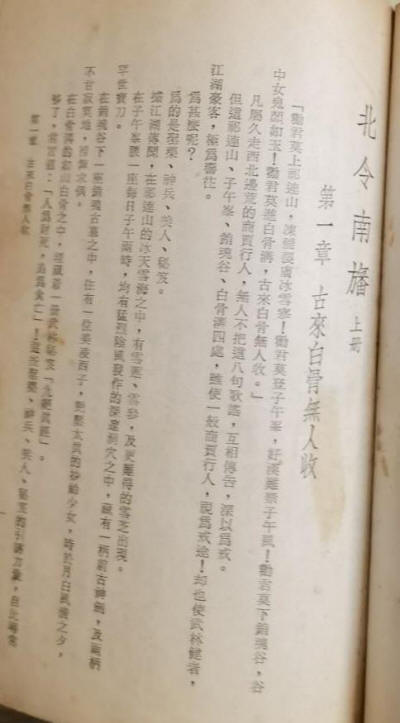 北令南旛 上册
第一章 古來白骨無人收
「勸君莫上祁連山,凍 裂膚冰雪寒!勸君莫登子午峯,好漢難禁子午風!勸君莫下銷魂谷,谷
中女鬼顏如玉!勸君莫遊白骨溝,古來白骨無人收。」
凡屬久走西北邊荒的商賈行人,無人不把這八句歌謠,互相傳告,深以爲戒。
但這祁連山、子午峯、銷魂谷、白骨溝四處,雖使一般商賈行人,視爲戒途!却也使武林健者,
江湖豪客,極爲嚮往。
爲甚麼呢?
爲的是聖藥、神兵、美人、秘笈。
據江湖傳聞,在祁連山的冰天雪海之中,有雪蓮、雪參,及更難得的雪芝出現。
在子午峯腰一座每日子午兩時,均有猛烈陰風發作的深邃洞穴之中,藏有一柄前古神劍,及兩柄
罕世寶刀。
在銷魂谷下一座銷魂古墓之中,住有一位美 西子,艷壓太真的妙齡少女,時於月白風清之夕,
不甘寂寞地,招郎求偶。
在白骨溝的如山白骨之中,埋藏着一册武林秘笈「九絕真經」。
夠了,常言道:「人爲財死,鳥爲食亡」!這些聖藥、神兵、美人、秘笈的引誘力量,自比尋常
第一章 古來白骨無人收